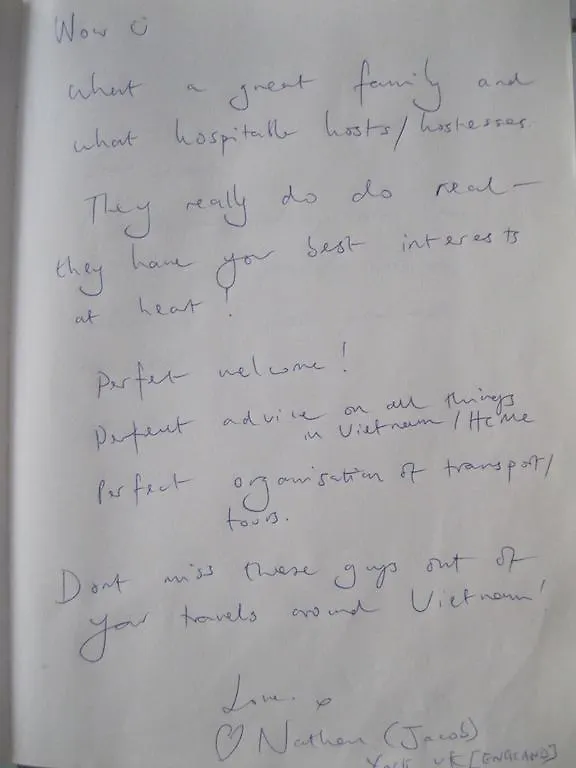 Wow ☺
What a great family and
what hospitable hosts/hostesses.
They really do do real –
they have your best interests
at heart!
Perfect welcome!
Perfect advice on all things
in Vietnam / HCMC
Perfect organisation of transport/
tours.
Dont miss these guys out of
your travels around Vietnam!
Love. x
♡ Nathan (Jacob)
York UK [ENGLAND]